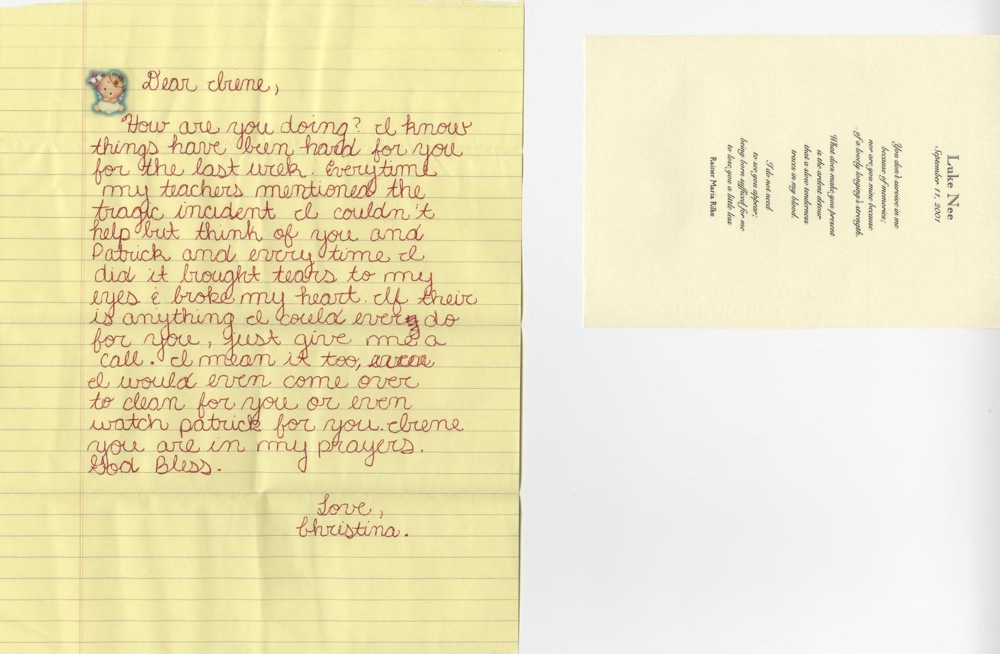 Dear Irene,
How are you doing? I know
things have been hard for you
for the last week. Everytime
my teachers mentioned the
tragic incident I couldn't
help but think of you and
Patrick and every time I
did it brought tears to my
eyes & broke my heart. If their
is anything I could ever do
for you, just give me a
call. I mean it too,
I would even come over
to clean for you or even
watch patrick for you. Irene
you are in my prayers.
God Bless.
Love,
Christina.
Luke Nee
September 11, 2001
You don't survive in me
because of memories;
nor are you mine because
of a lovely longing's strength.
What does make you present
is the ardent detour
that a slow tenderness
traces in my blood.
I do not need
to see you appear;
being born sufficed for me
to lose you a little less
Rainer Maria Rilke